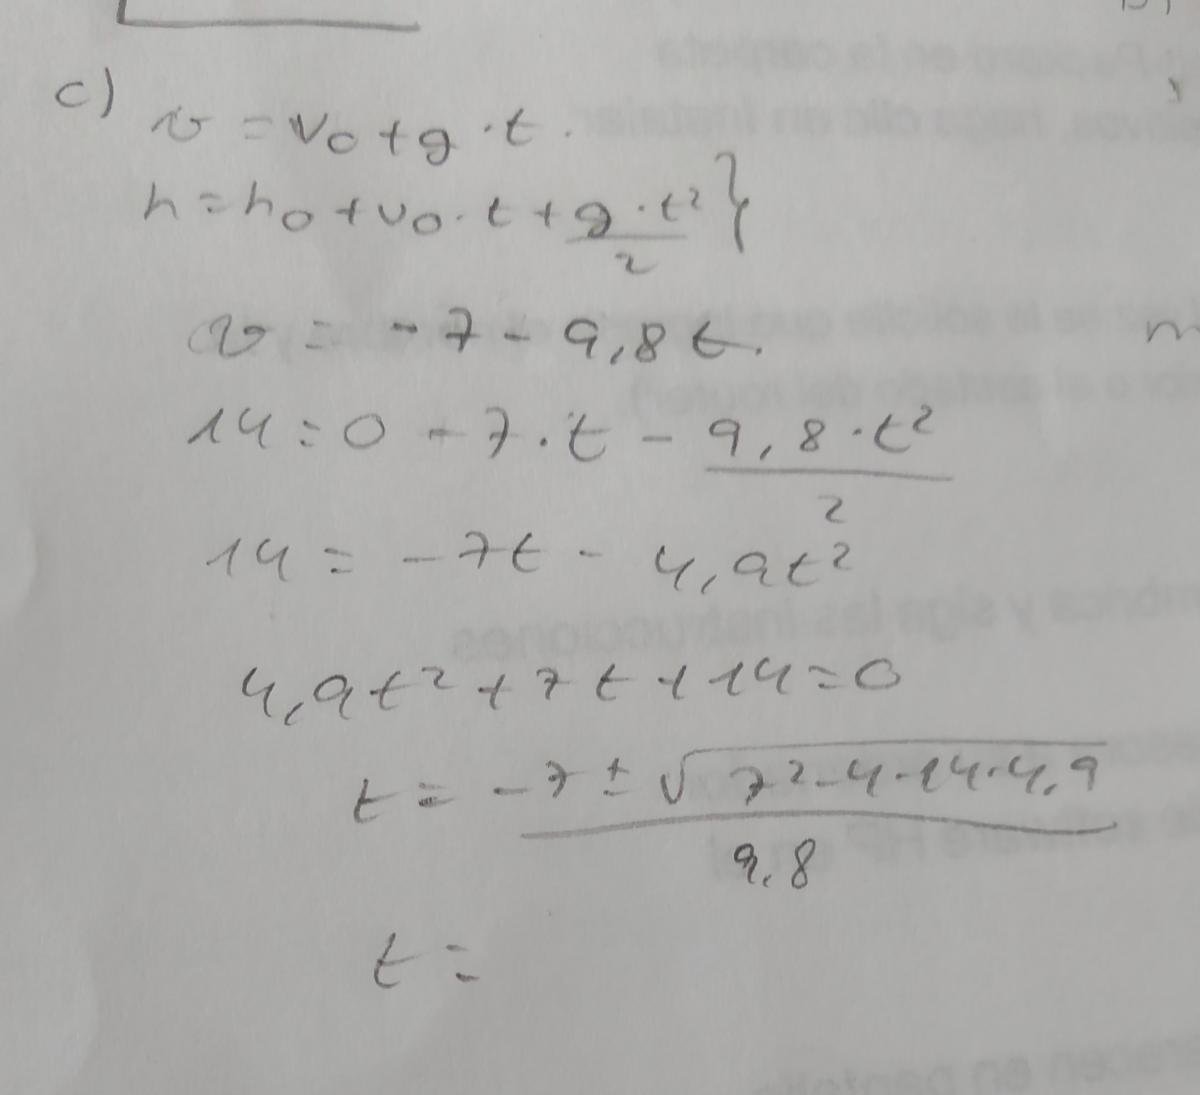 c) v = v0 + g · t.
h = h0 + v0 · t + g · t² / 2 }
v = -7 - 9,8 t.
14 = 0 - 7 · t - 9,8 · t² / 2
14 = -7t - 4,9t²
4,9t² + 7t + 14 = 0
t = -7 ± √7² - 4 · 14 · 4,9 / 9,8
t =